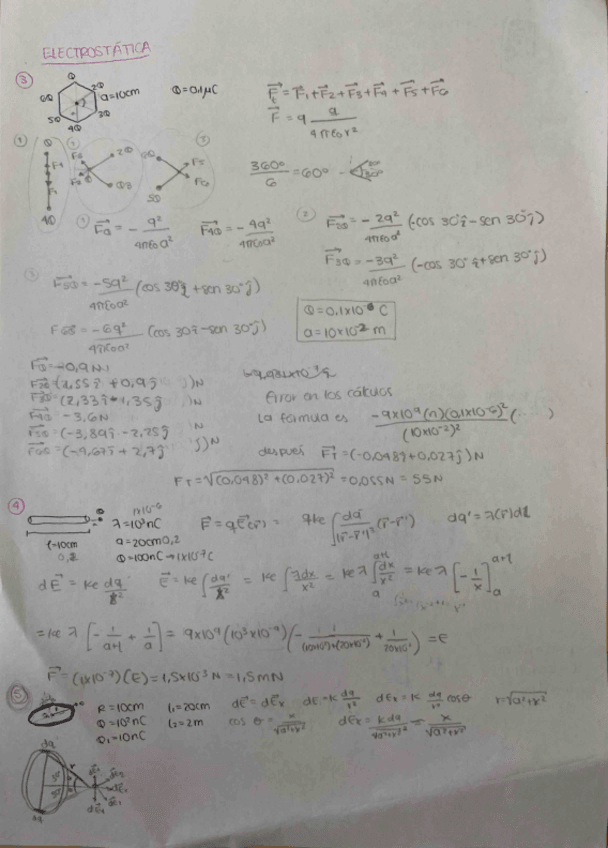 ELECTROSTÁTICA
③ Q 2Q 3Q 4Q 5Q 6Q a=10cm Q=0,1μC
F⃗t = F⃗1+F⃗2+F⃗3+F⃗4+F⃗5+F⃗6
F⃗ = q q/4πε0r²
360°/6 = 60° 30°
① F⃗Q = - q²/4πε0a² F⃗4Q = - 4q²/4πε0a²
② F⃗2Q = - 2q²/4πε0a² (-cos 30°î - sen 30°ĵ)
F⃗3Q = -3q²/4πε0a² (-cos 30°î + sen 30°ĵ)
③ F⃗5Q = -5q²/4πε0a² (cos 30°î + sen 30°ĵ)
F⃗6Q = -6q²/4πε0a² (cos 30î - sen 30ĵ)
a = 10x10⁻² m
F⃗Q = -0,9N
F⃗2Q = (1,55î + 0,9ĵ)N
F⃗3Q = (2,33î - 1,35ĵ)N
F⃗4Q = -3,6N
F⃗5Q = (-3,89î - 2,25ĵ)N
F⃗6Q = (-4,67î + 2,7ĵ)N
Error en los cálculos
La fórmula es -9x10⁹(n)(0,1x10⁻⁶)²/(10x10⁻²)² (...)
después F⃗T = (-0,048î + 0,027ĵ)N
FT = √(0,048)² + (0,027)² = 0,055N = 55N
④ λ = 10³nC F⃗ = qE⃗(r⃗) = qke ∫ dq'/|r⃗-r⃗'|² (r⃗-r⃗') dq' = λ(r⃗)dl
l=10cm a = 20cm 0,2
Q = 100nC → 1x10⁻⁷C
dE⃗ = ke dq/x² E⃗ = ke ∫ dq'/x² = ke ∫ λdx/x² = ke λ ∫ dx/x² = ke λ [-1/x] a+l a
= ke λ [-1/a+l + 1/a] = 9x10⁹ (10³x10⁻⁹) (-1/(10x10⁻²)+(20x10⁻²) + 1/20x10⁻²) = E
F⃗ = (1x10⁻⁷)(E) = 1,5x10⁻³N = 1,5mN
⑤ R = 10cm l₁ = 20cm dE⃗ = dE⃗x dE = K dq/r² dEx = K dq/r² cosθ r = √a²+x²
Q = 10³nC l₂ = 2m cos θ = x/√a²+x² dE⃗x = K dq/√a²+x²² x/√a²+x²
Q₁ = 10nC
dq